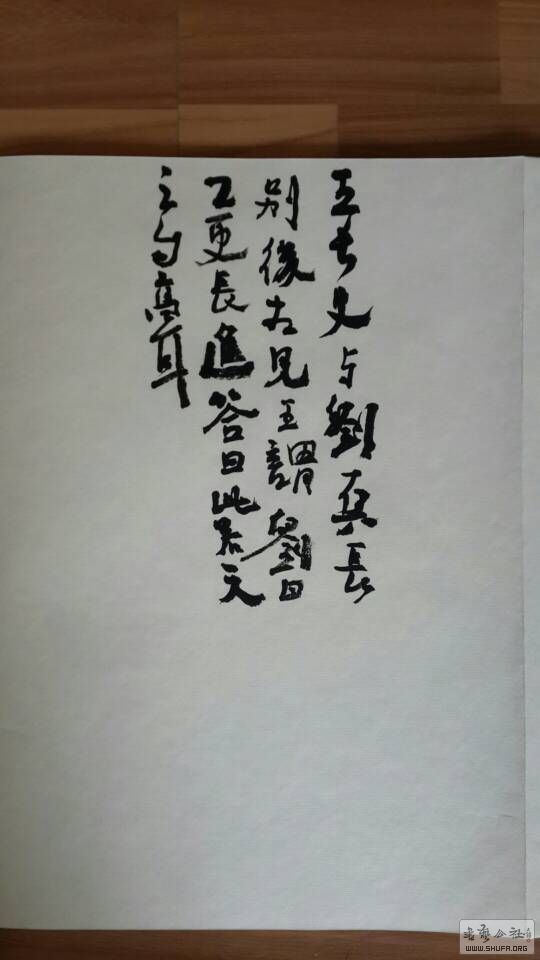 王長史与劉真長
别後相見王謂劉曰
卿更長進答曰此若天
之自高耳
書藝公社
WWW.SHUFA.ORG